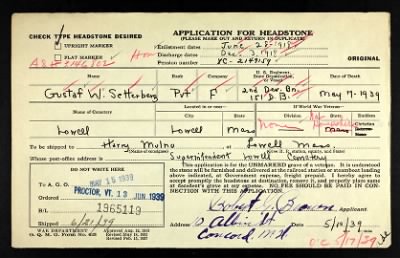 APPLICATION FOR HEADSTONE
(PLEASE MAKE OUT AND RETURN IN DUPLICATE)
CHECK TYPE HEADSTONE DESIRED
UPRIGHT MARKER
FLAT MARKER
Enlistment dates June 28 1918
Discharge dates Dec 3 1918
Pension number XC-2149159
ORIGINAL
Hon
Name
Rank
Company
U. S. Regiment,
Date of Death
Gustaf W. Setterberg
Pvt
F
2nd Dev. Bn.
151 D.B.
May 7-1939
Name of Cemetery
Located in or near—
If World War Veteran—
City
State
Lowell
Lowell
Mass
None
Mass
To be shipped to
Harry
at
Lowell Mass.
Whose post-office address is
Superintendent Lowell Cemetery
DO NOT WRITE HERE
This application is for the UNMARKED grave of a veteran. It is understood
the stone will be furnished and delivered at the railroad station or steamboat landing
above indicated, at Government expense, freight prepaid. I hereby agree to
accept properly the headstone at destination, remove it, and properly place
same at decedent's grave at my expense. NO FEE SHOULD BE PAID IN CONNECTION WITH THIS APPLICATION.
To A. G. O.
MAY 15 1939
Ordered
PROCTOR, VT. 13 JUN 1939
B/L
1965119
Shipped 6/21/39
Robert
Concord
5/10/39
WAR DEPARTMENT
O. Q. M. G. Form No. 623